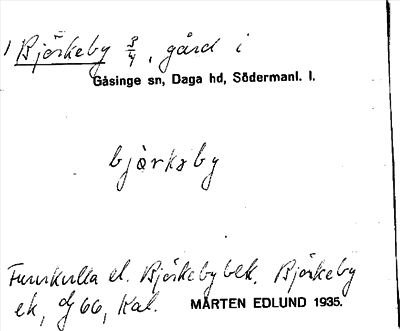 1 Björkeby 3/4, gård i
Gåsinge sn, Daga hd, Södermanl. l.
bjò̀rkəby
Furukulla el. Björkebybek. Björkeby
ek, dj 66, Kat.
MÅRTEN EDLUND 1935.